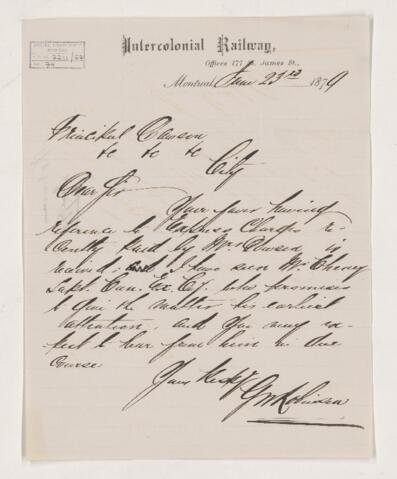 Intercolonial Railway,
Offices 177 St. James St.,
Montreal, June 23rd 1879
Principal Dawson
&c &c &c
City
Dear Sir
Your favor having
reference to Express Charges re-
cently paid by Mrs Dawson is
received; I have seen Mr. Cheney
Supt. Can. Ex. Co. who promises
to give the matter his earliest
attention, and you may ex-
pect to hear from him in due
course
Yours Respy
GW Robinson